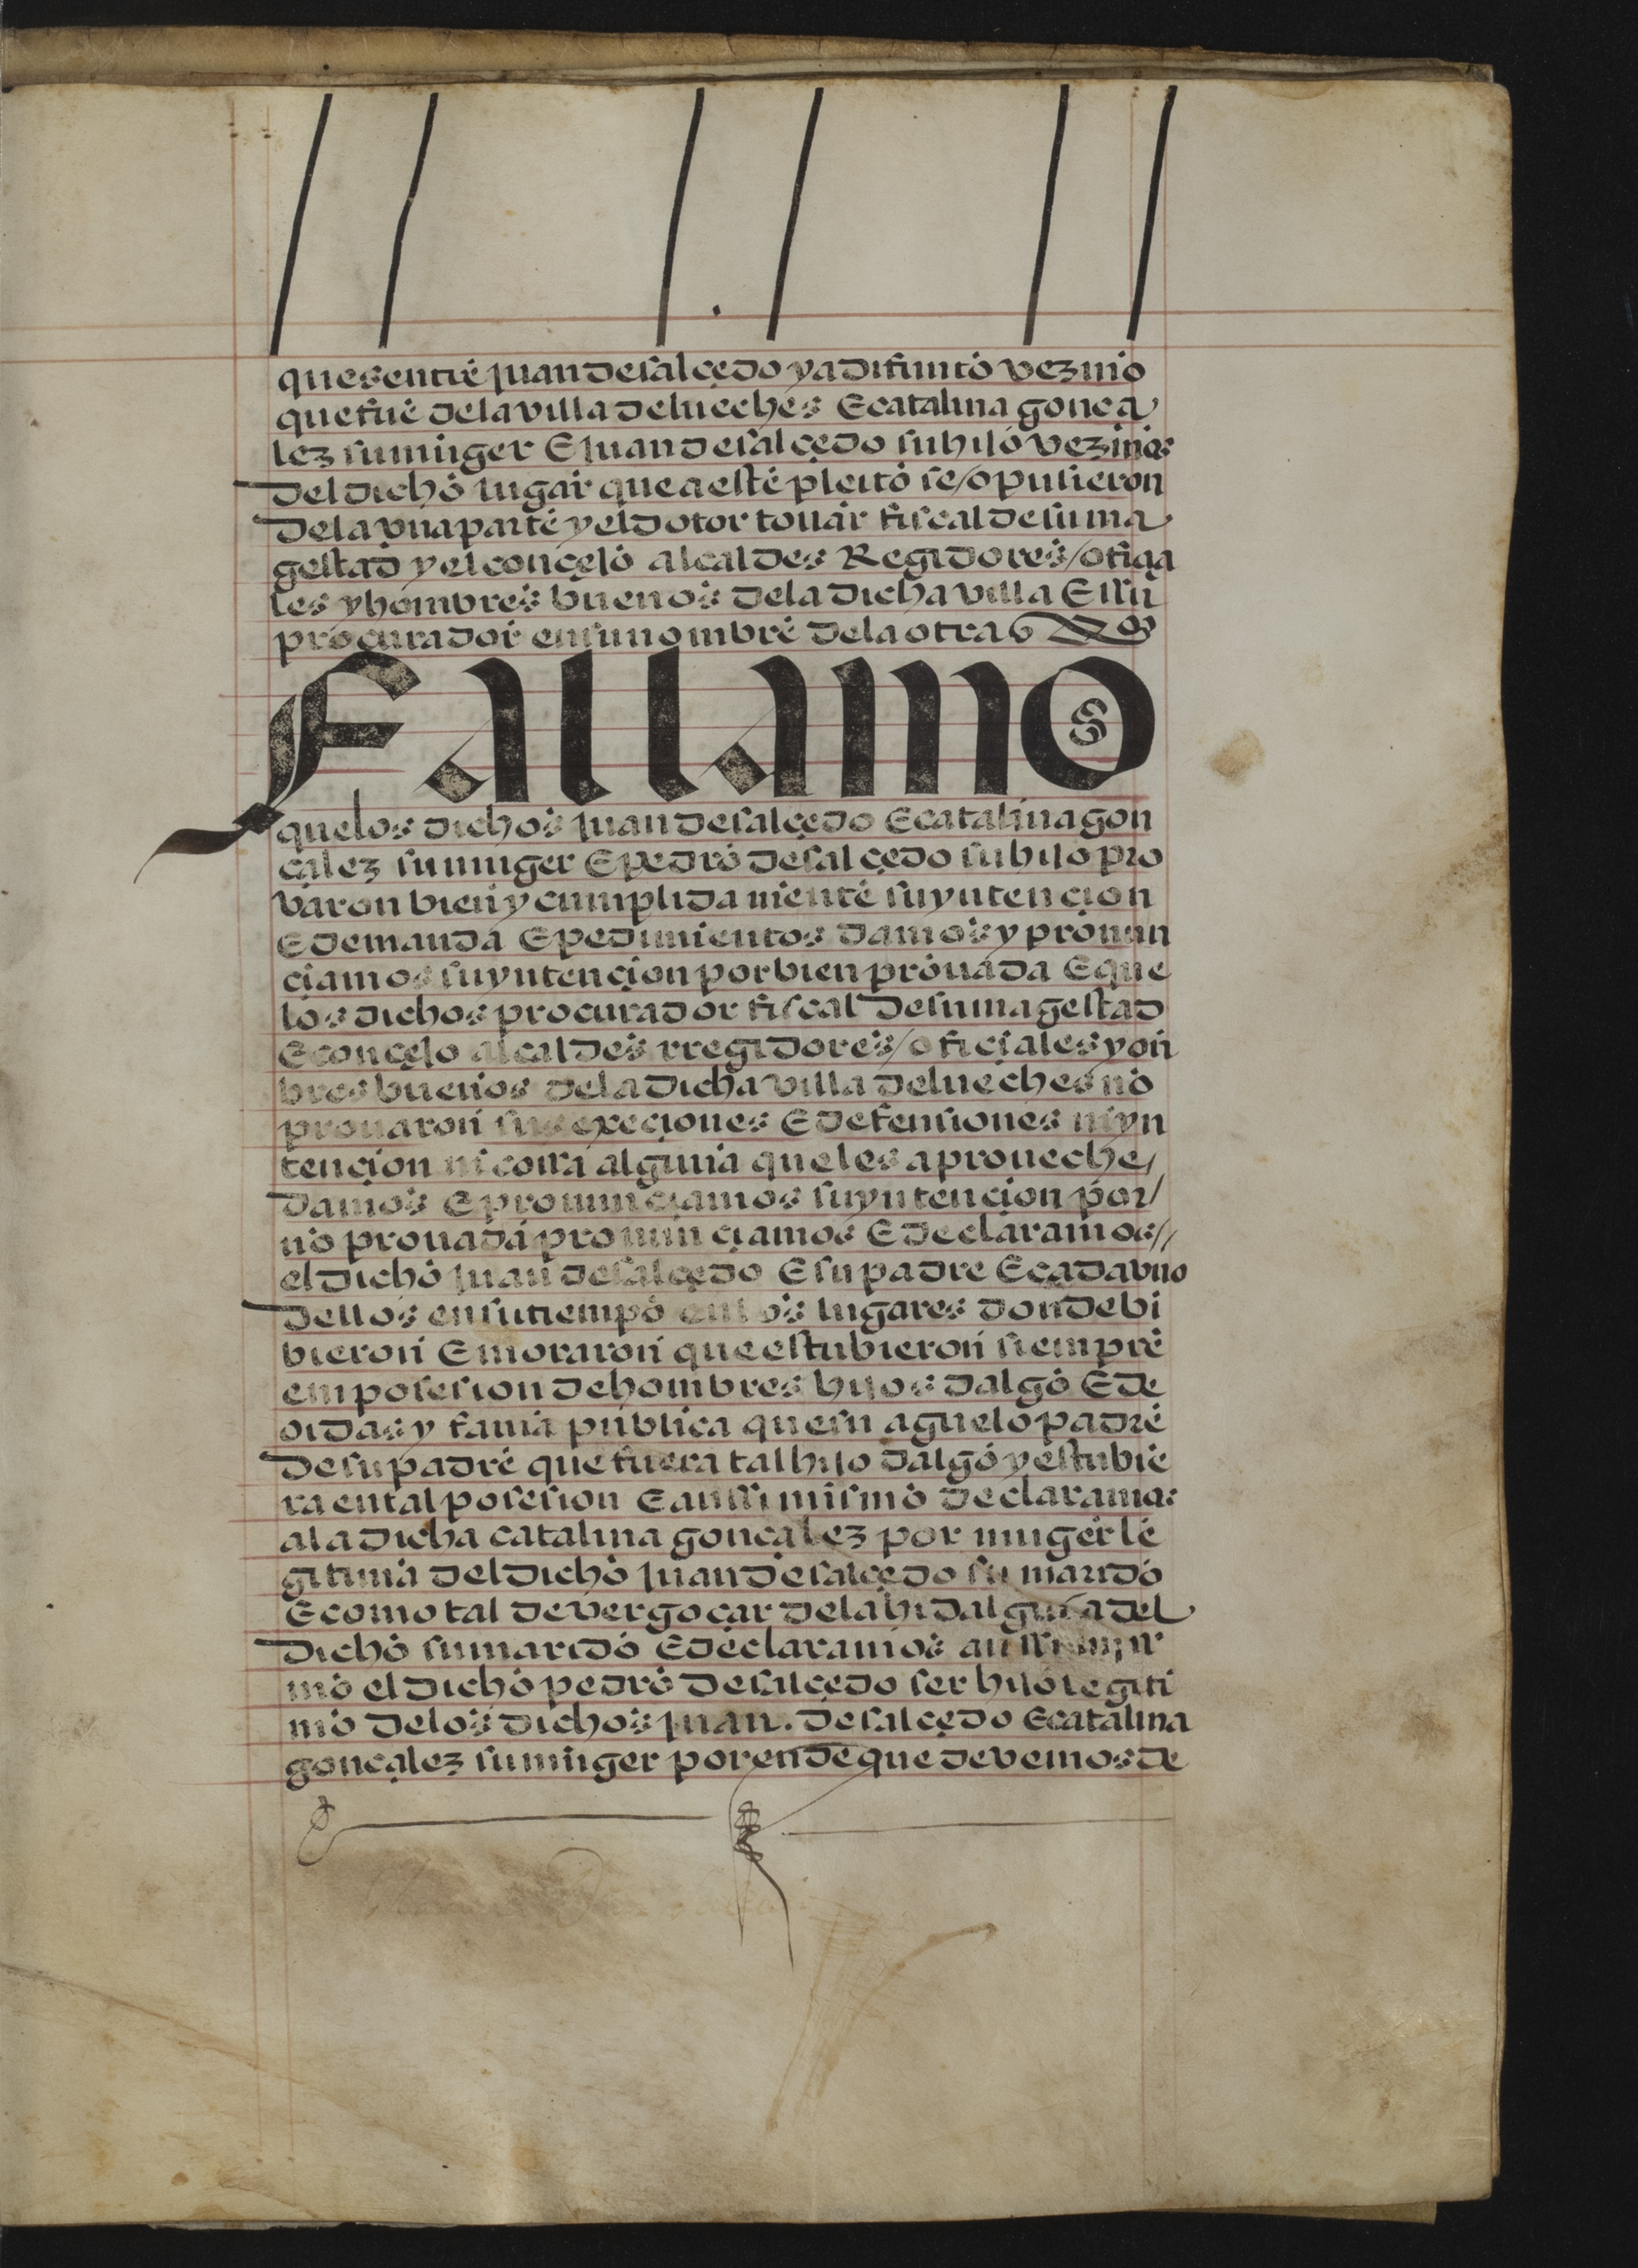 que es entre juan de salçedo ya difunto vezino
que fue de la villa de lueches E catalina gonça
lez su muger E juan de salçedo su hijo vezinos
del dicho lugar que a este pleito se / opusieron
de la vna parte y el dotor touar fiscal de su ma
gestad y el conçejo alcaldes Regidores / ofiçia
les y hombres buenos de la dicha villa E ssu
procurador en su nombre de la otra
Fallamos
que los dichos juan de salçedo E catalina gon
çalez su muger E pedro de salçedo su hijo pro
varon bien y cumplida mente su yntençion
E demanda E pedimientos damos y pronun
çiamos su yntençion por bien prouada E que
los dichos procurador fiscal de su magestad
E conçejo alcaldes rregidores / ofiçiales y on
bres buenos de la dicha villa de lueches no
prouaron sus exeçiones E defensiones ni yn
tençion ni cossa alguna que les aproueche /
damos E pronunçiamos su yntençion por /
no prouada pronunçiamos E declaramos //
el dicho juan de salçedo E su padre E cada vno
dellos en su tiempo en los lugares donde bi
bieron E moraron que estubieron siempre
em posesion de hombres hijos dalgo E de
oidas y fama publica que su aguelo padre
de su padre que fuera tal hijo dalgo y estubie
ra en tal posesion E aussi mismo declaramos
a la dicha catalina gonçalez por muger le
gitima del dicho juan de salçedo su marido
E como tal dever goçar de la hidalguia del
dicho su marido E declaramos aussi mis
mo el dicho pedro de salçedo ser hijo legiti
mo de los dichos juan . de salçedo E catalina
gonçalez su muger por ende que devemos de